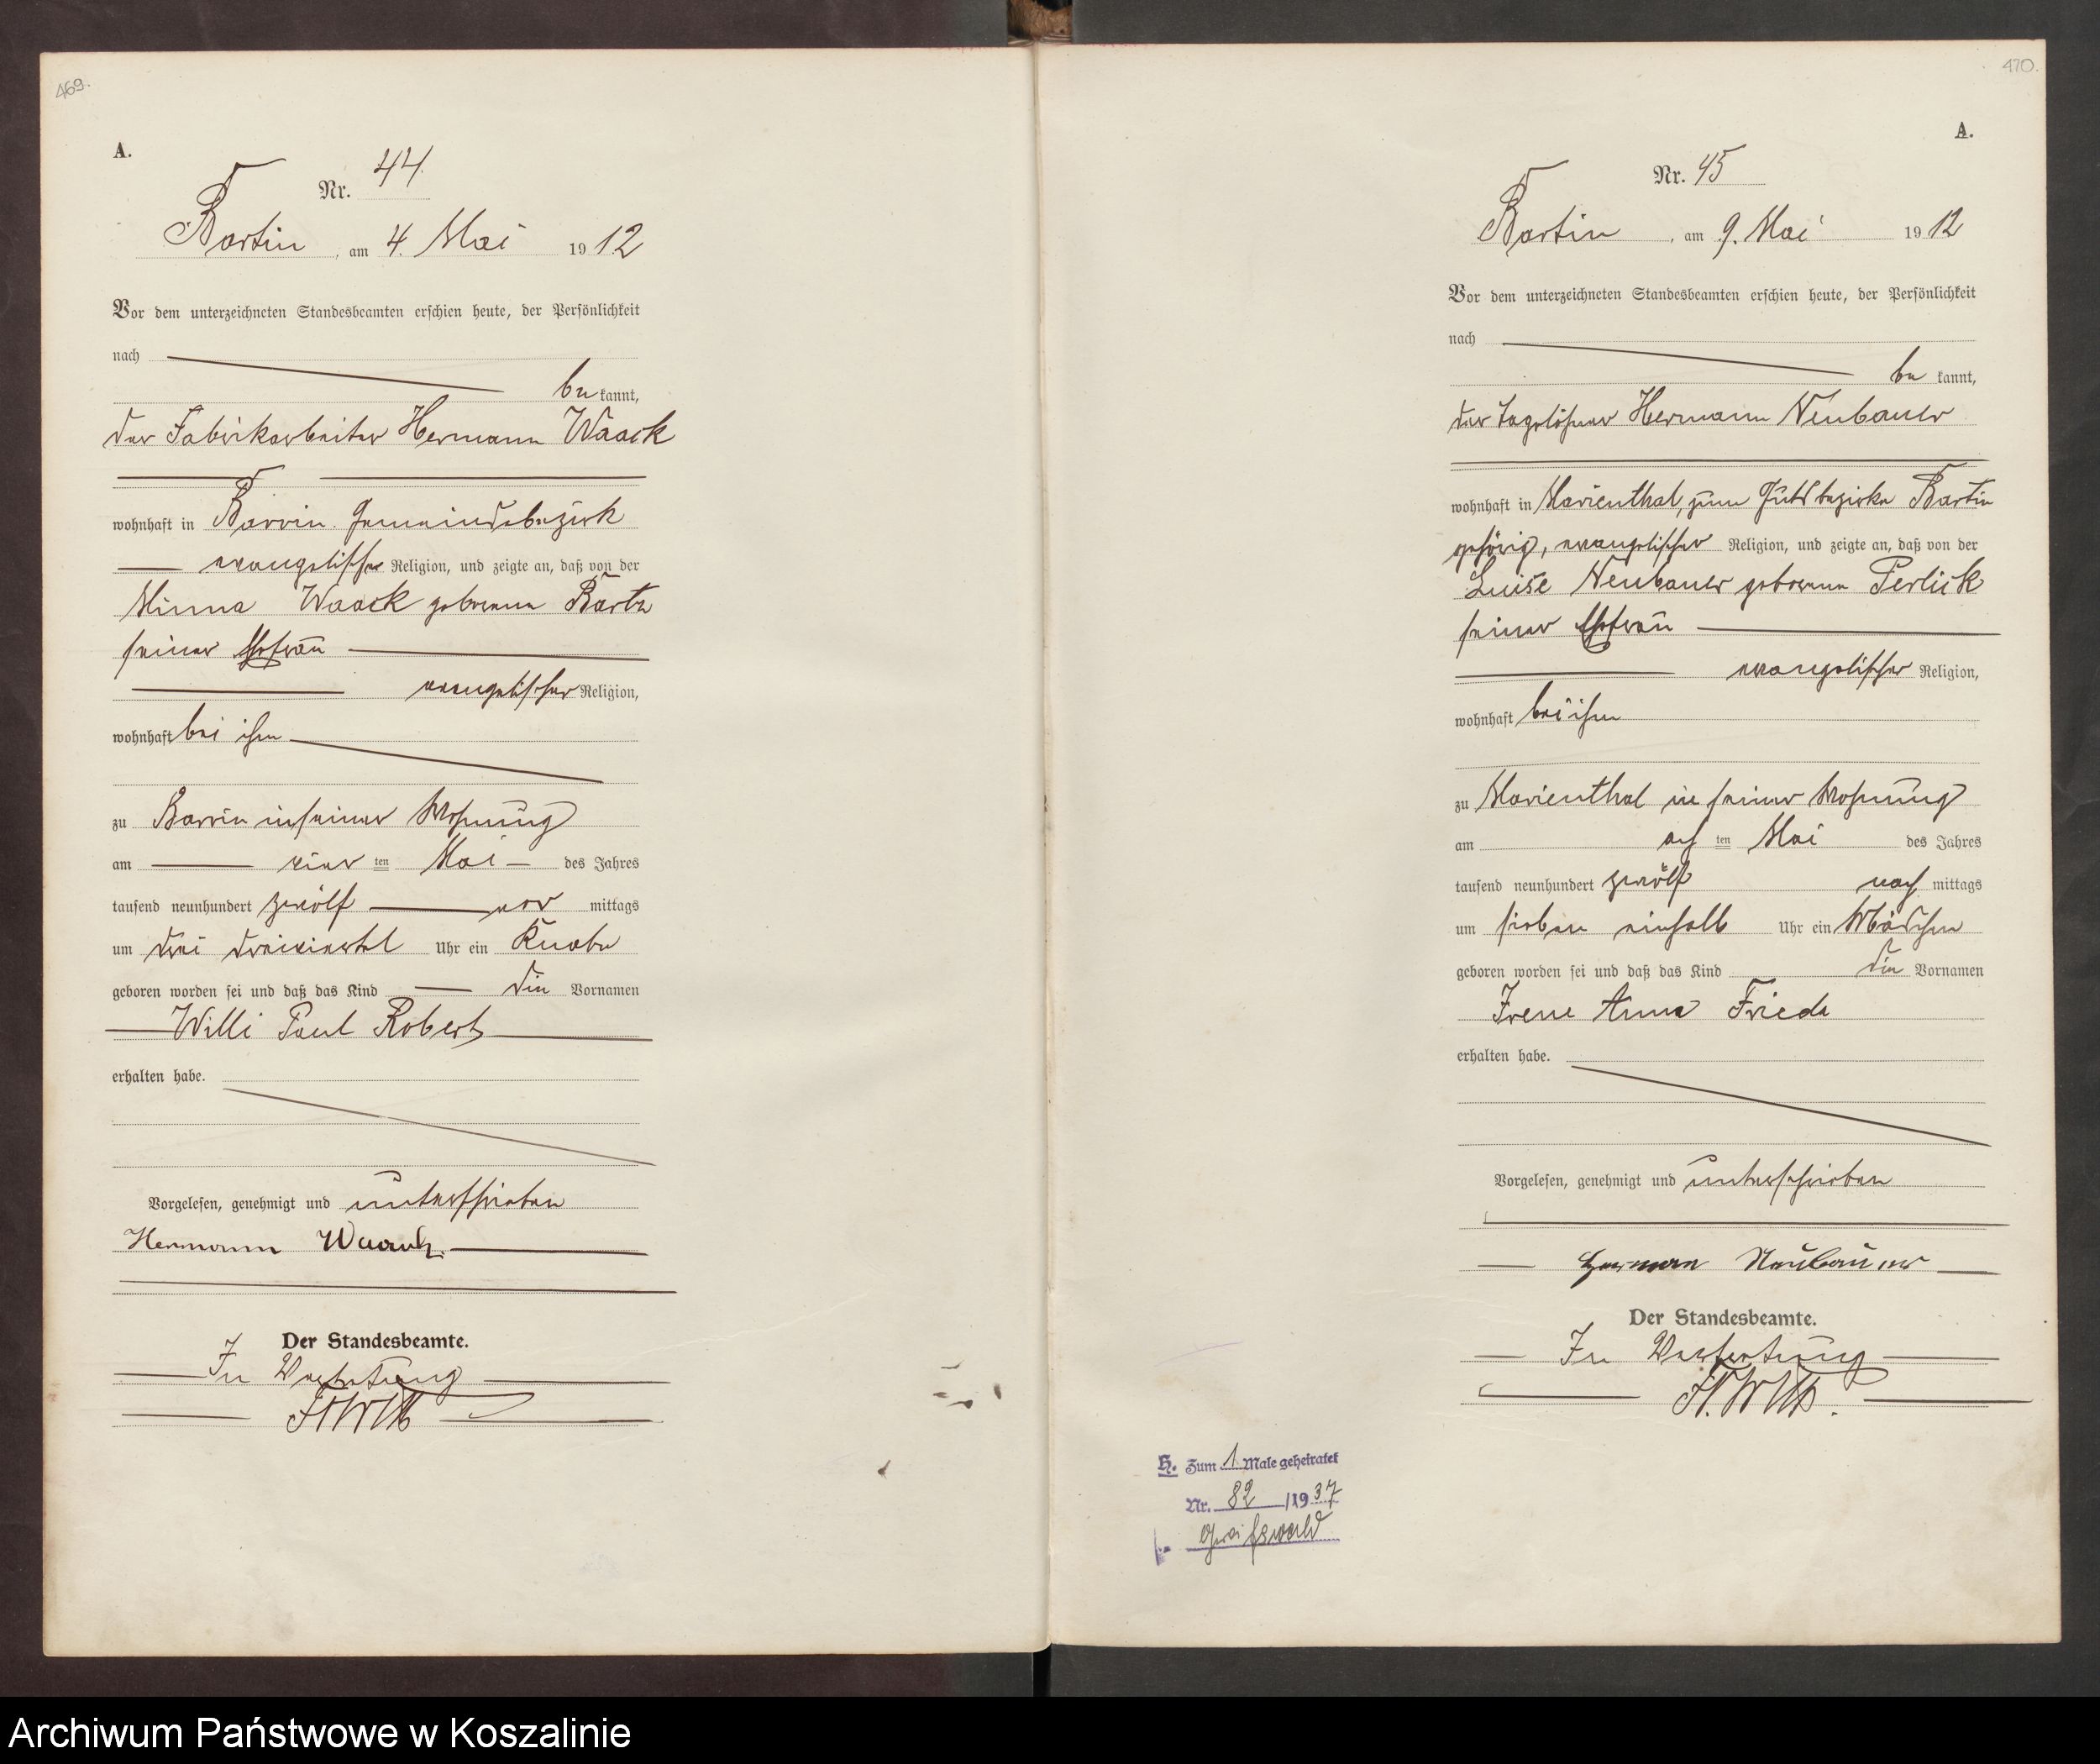 469.
A.
Nr. 44.
Bartin, am 4. Mai 1912
Vor dem unterzeichneten Standesbeamten erschien heute, der Persönlichkeit
nach
be kannt,
der Fabrikarbeiter Hermann Waack
wohnhaft in Barvin Gemeindebezirk
evangelischer Religion, und zeigte an, daß von der
Minna Waack geborenen Bartz
seiner Ehefrau
evangelischer Religion,
wohnhaft bei ihm
zu Barvin in seiner Wohnung
am einer ten Mai des Jahres
tausend neunhundert zwölf vor mittags
um drei dreiviertel Uhr ein Knabe
geboren worden sei und daß das Kind die Vornamen
Willi Paul Robert
erhalten habe.
Vorgelesen, genehmigt und unterschrieben
Hermann Waack.
Der Standesbeamte.
In Vertretung
470.
A.
Nr. 45
Bartin, am 9. Mai 1912
Vor dem unterzeichneten Standesbeamten erschien heute, der Persönlichkeit
nach
be kannt,
der Tagelöhner Hermann Neubauer
wohnhaft in Marienthal, zum Gutsbezirke Bartin
gehörig, evangelischer Religion, und zeigte an, daß von der
Luise Neubauer geborenen Perlick
seiner Ehefrau
evangelischer Religion,
wohnhaft bei ihm
zu Marienthal in seiner Wohnung
am ach ten Mai des Jahres
tausend neunhundert zwölf nach mittags
um sieben einhalb Uhr ein Mädchen
geboren worden sei und daß das Kind die Vornamen
Irene Anna Frieda
erhalten habe.
Vorgelesen, genehmigt und unterschrieben
Herman Neubauer
Der Standesbeamte.
In Vertretung
H. Zum 1 Male geheiratet
Nr. 82 /1937
Greifswald
Archiwum Państwowe w Koszalinie